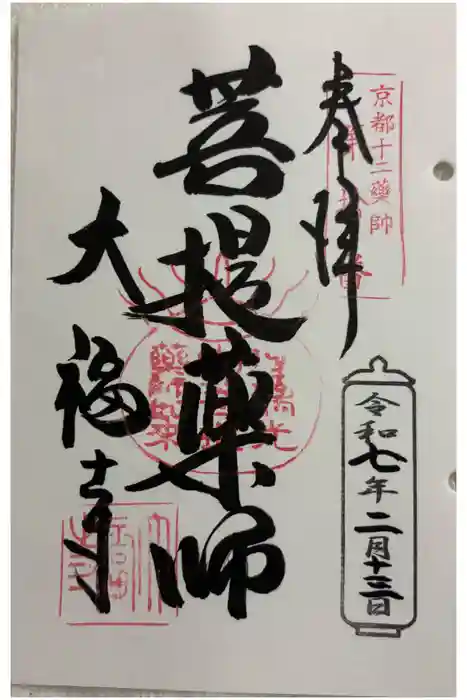 奉拝
京都十二藥師
令和七年二月十三日
菩提薬師
大福寺